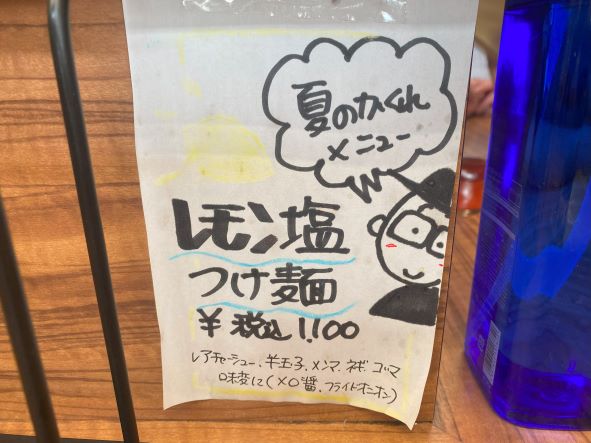 夏のかくれ
メニュー
レモン塩
つけ麺
¥ 税込 1,100
レアチャーシュー、半玉子、メンマ、ネギ、ゴマ
味変に(メロ醬、フライドオニオン)